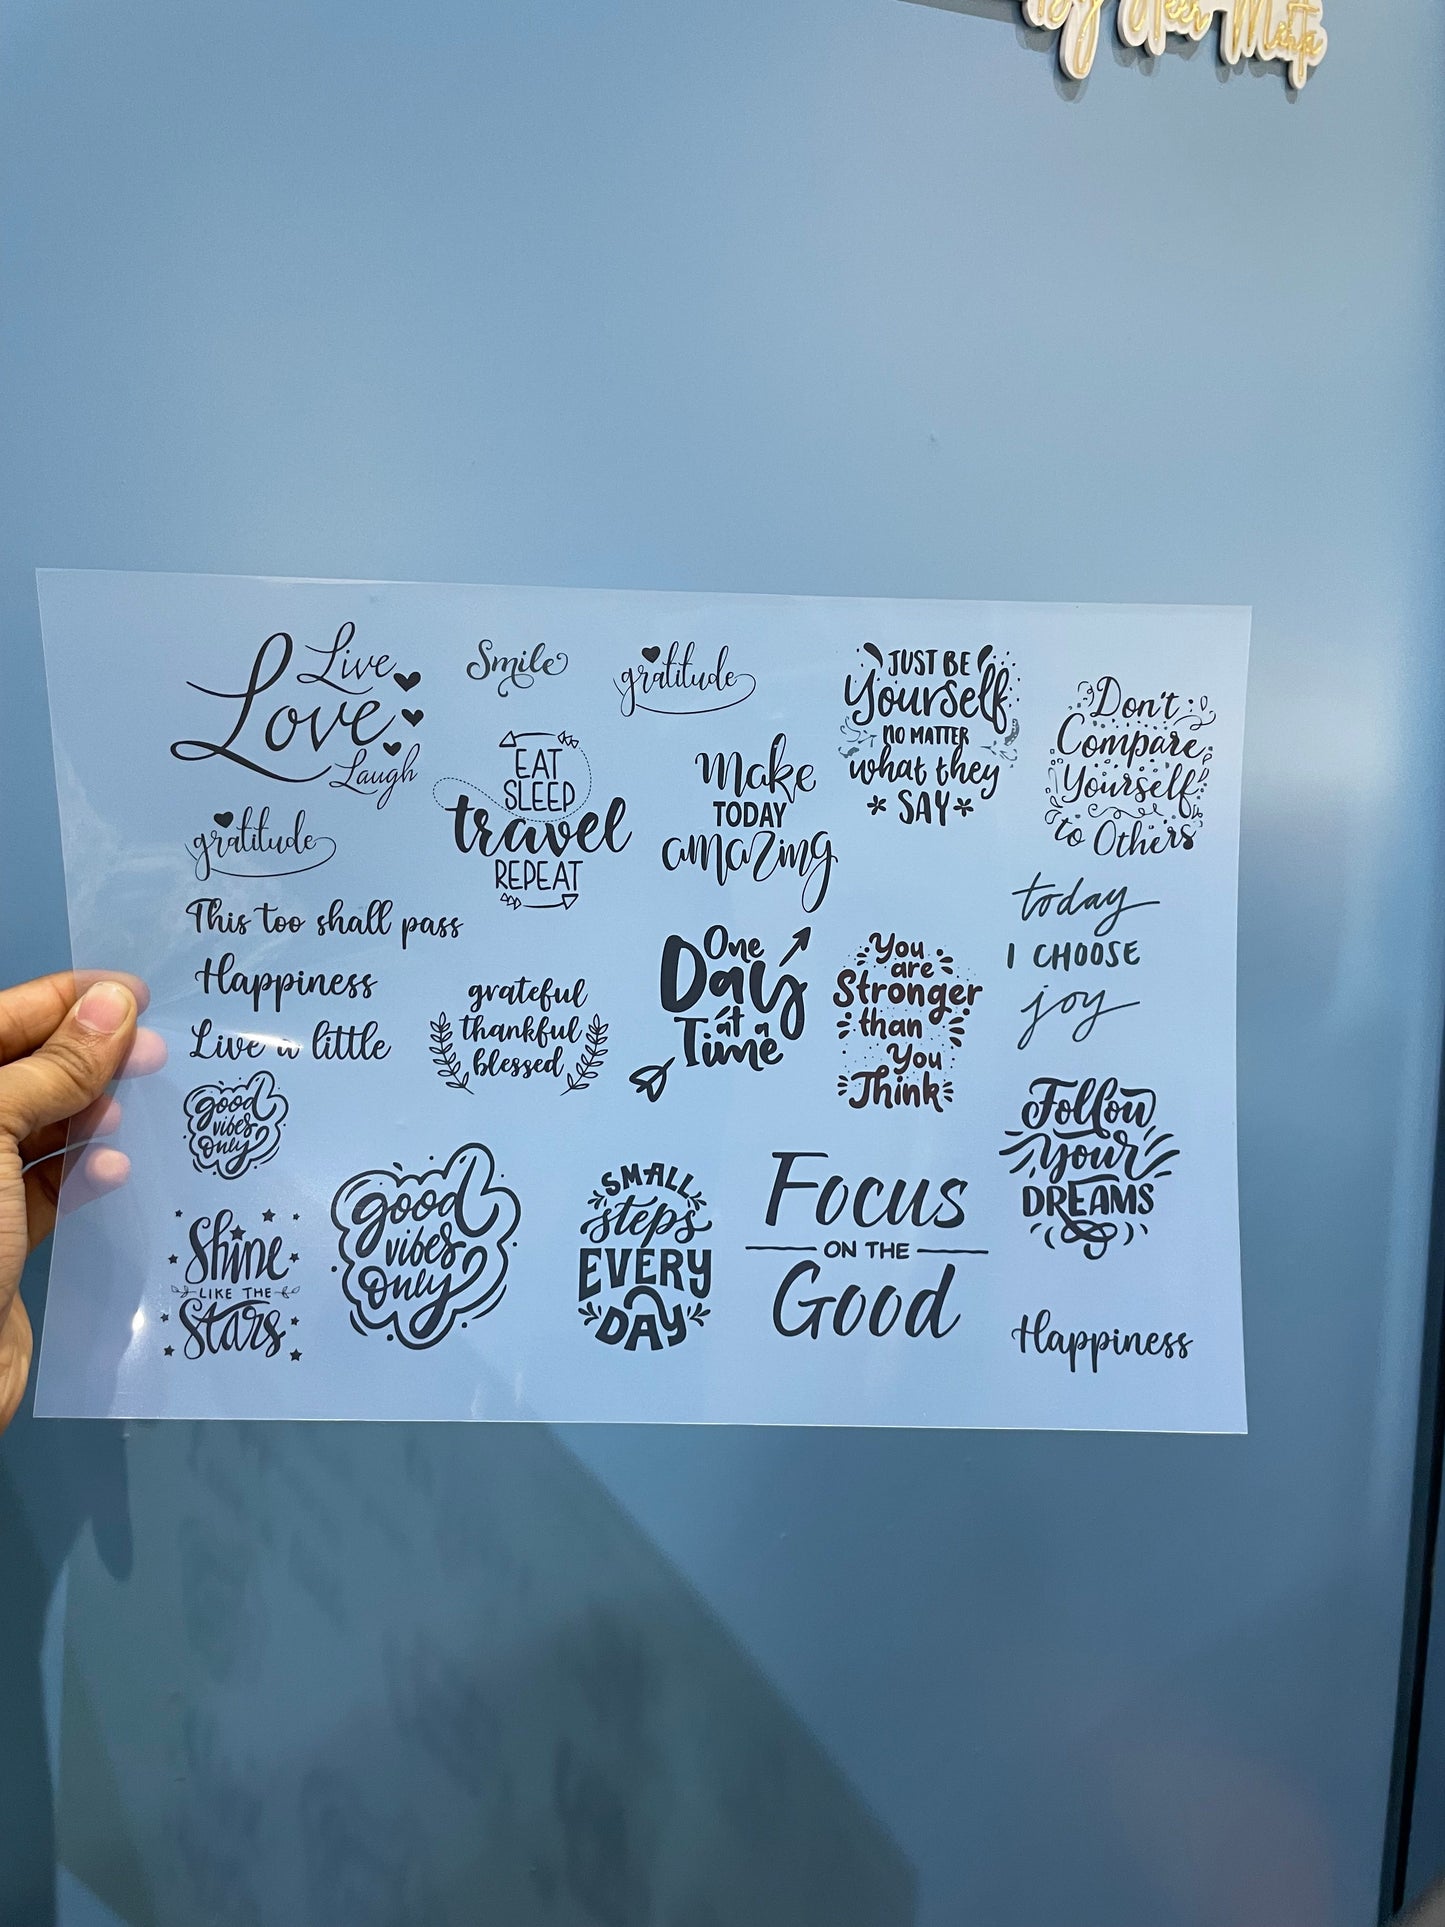 By Neer Mirja
Live
Love
Laugh
Smile
gratitude
JUST BE
Yourself
NO MATTER
what they
* SAY *
Don't
Compare
Yourself
to Others
EAT
SLEEP
travel
REPEAT
Make
TODAY
amazing
gratitude
This too shall pass
Happiness
Live a little
grateful
thankful
blessed
One
Day
at a
Time
You
are
Stronger
than
You
Think
today
I CHOOSE
joy
good
vibes
only
Follow
your
DREAMS
Shine
LIKE THE
Stars
good
vibes
only
SMALL
steps
EVERY
DAY
Focus
ON THE
Good
Happiness